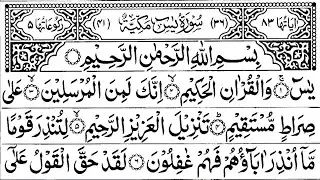 اٰيَاتُهَا ٨٣ (٣٦) سُوْرَةُ يٰسٓ مَكِّيَّةٌ (٤١) رُكُوْعَاتُهَا ٥
بِسْمِ اللّٰهِ الرَّحْمٰنِ الرَّحِيْمِ
يٰسٓ ۚ ۝١ وَالْقُرْاٰنِ الْحَكِيْمِ ۝٢ اِنَّكَ لَمِنَ الْمُرْسَلِيْنَ ۝٣ عَلٰى
صِرَاطٍ مُّسْتَقِيْمٍ ۝٤ تَنْزِيْلَ الْعَزِيْزِ الرَّحِيْمِ ۝٥ لِتُنْذِرَ قَوْمًا
مَّاۤ اُنْذِرَ اٰبَآؤُهُمْ فَهُمْ غٰفِلُوْنَ ۝٦ لَقَدْ حَقَّ الْقَوْلُ عَلٰۤى